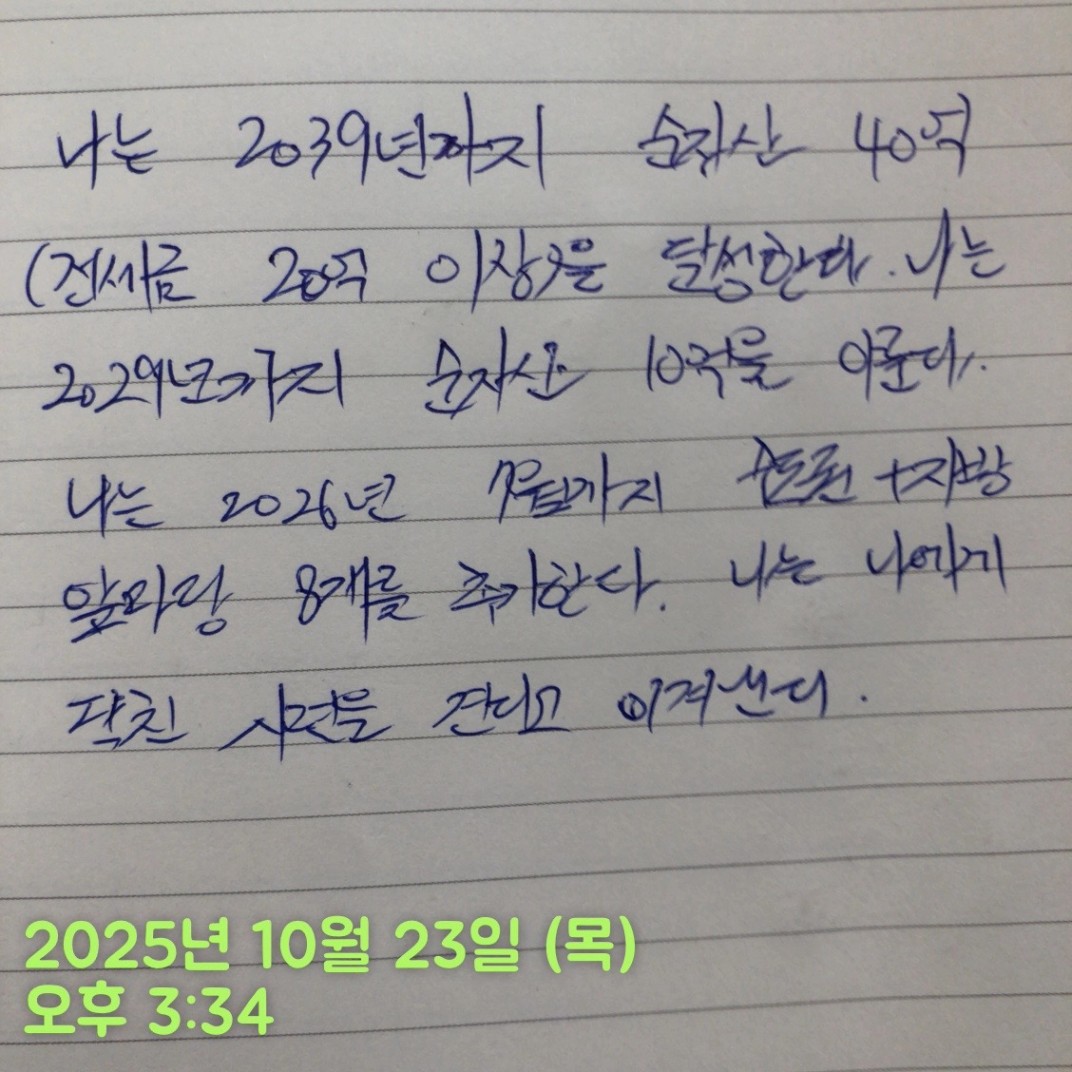 나는 2039년까지 순자산 40억
(전세금 20억 이상)을 달성한다. 나는
2029년까지 순자산 10억을 이룬다.
나는 2026년 까지 수도권+지방
앞마당 8개를 추가한다. 나는 나에게
닥친 시련을 견디고 이겨낸다.
2025년 10월 23일 (목)
오후 3:34